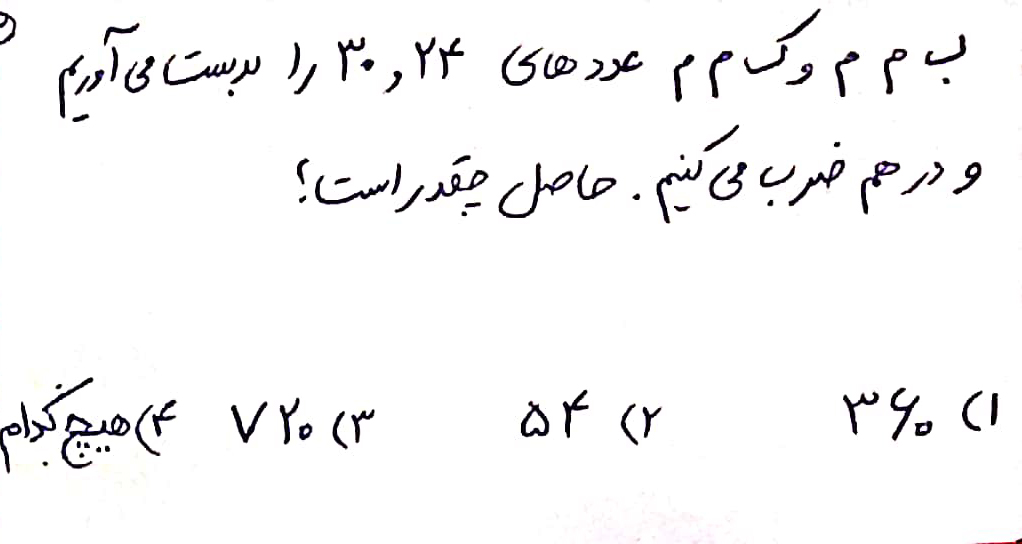 ب م م و ک م م عددهای ۲۴ و ۳۰ را بدست می آوریم
و در هم ضرب می کنیم . حاصل چقدر است؟
۱) ۳۶۰ ۲) ۵۴ ۳) ۷۲۰ ۴) هیچ کدام